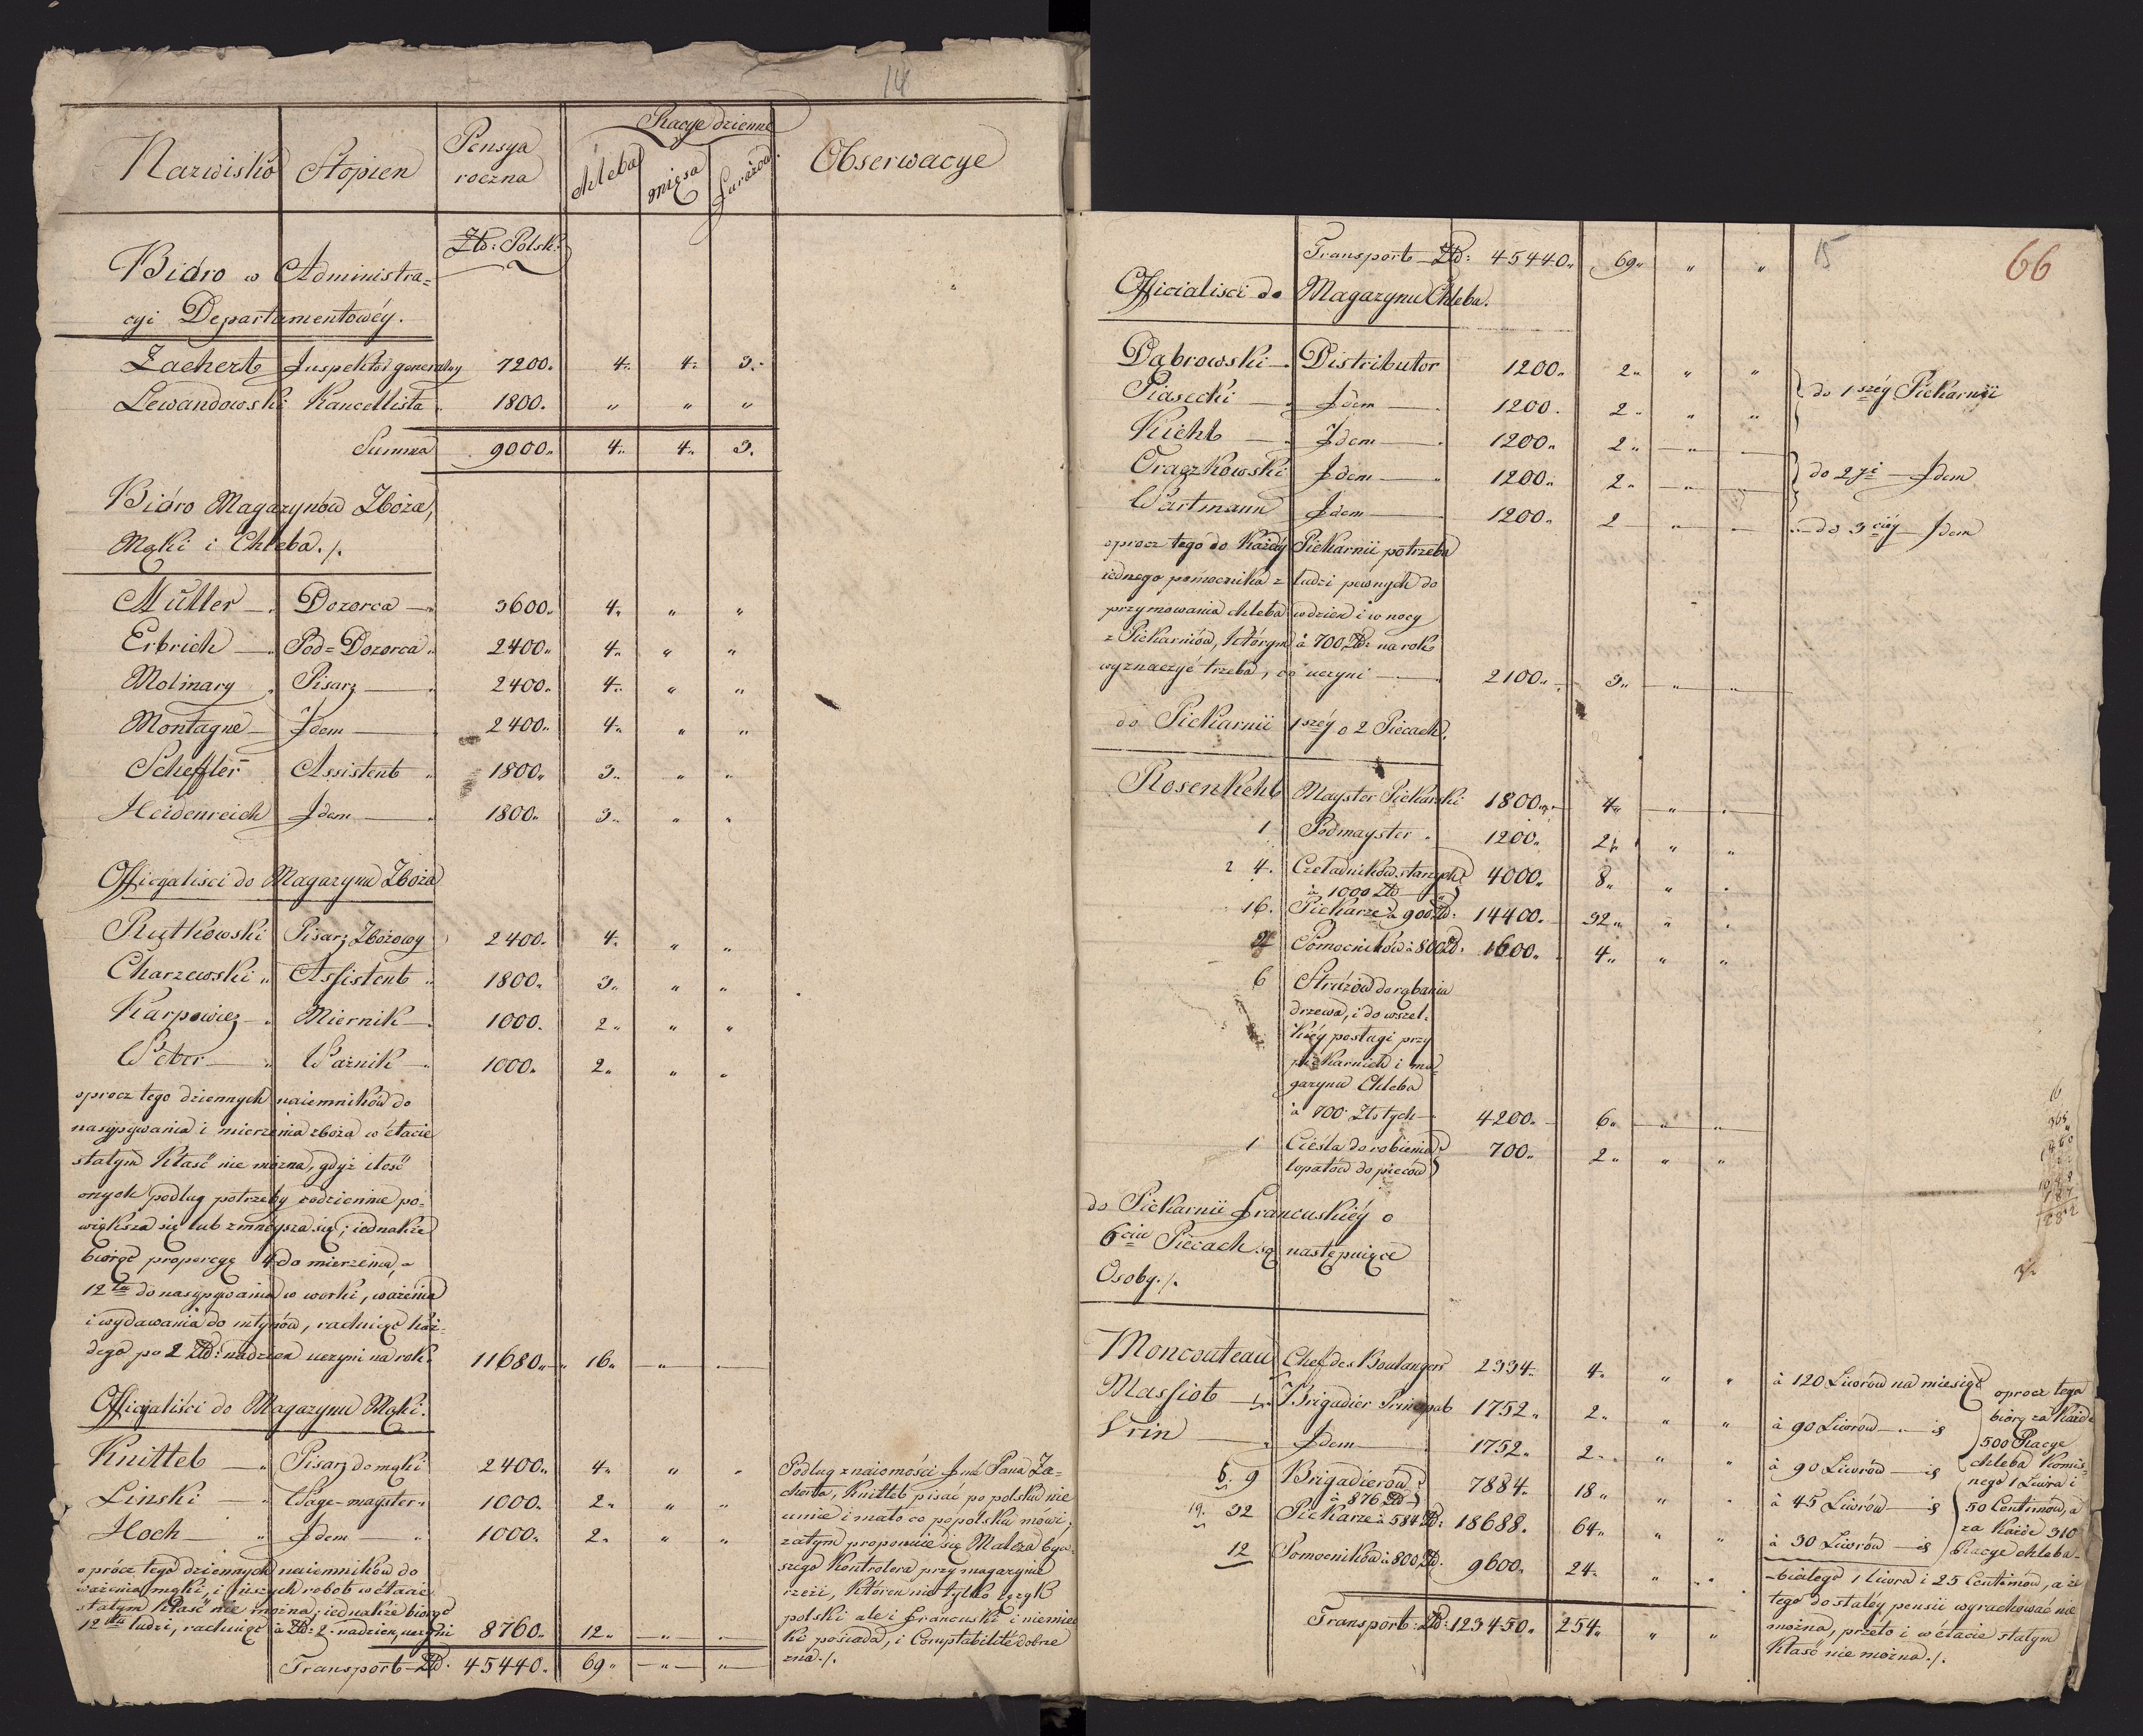 14
Racye dzienne
Nazwisko Stopien Pensya roczna chleba mięsa furażow. Obserwacye
Złło: Polsk:
Bióro w Administra=
cyi Departamentowéy.
Zachert Inspektor generalny 7200. 4. 4. 3.
Lewandowski Kancellista 1800. " " "
Summa 9000. 4. 4. 3.
Bióro Magazynów Zboża,
Mąki i Chleba ./.
Müller Dozorca 3600. 4. " "
Erbrich Pod=Dozorca 2400. 4. " "
Molinary Pisarz 2400. 4. " "
Montagne Idem 2400. 4. " "
Scheffler Assistent 1800. 3. " "
Heidenreich Idem 1800. 3. " "
Officyaliści do Magazynu Zboża
Rutkowski Pisarz Zbożowy 2400. 4. " "
Charzewski Assistent 1800. 3. " "
Karpowicz Miernik 1000. 2. " "
Weber Ważnik 1000. 2. " "
oprocz tego dziennych naiemników do
nasypywania i mierzenia zboża w étacie
stałym kłaść nie można, gdyż ilość
onych podług potrzeby codziennie po=
większa się lub zmnieysza się; iednakże
biorąc proporcyę 4 do mierzenia, a
12tu do nasypywania w worki, ważenia
i wydawania do młynów, rachuiąc każ=
dego po 2 Złł: na dzień uczyni na rok. 11680. 16. " "
Officyaliści do Magazynu Mąki.
Knittel Pisarz do mąki 2400. 4. " "
Linski Wage-mayster 1000. 2. " "
Hoch Idem 1000. 2. " "
oprócz tego dziennych naiemników do
ważenia mąki, i inszych robot w étacie
stałym kłaść nie można; iednakże biorąc
12tu ludzi, rachuiąc à Złł: 2 na dzień, uczyni 8760. 12. " "
Transport Złł. 45440. 69. " "
Podług znaiomości Jmć Pana Za=
cherta, Knittel pisać po polsku nie
umie i mało co po polsku mowi,
zatym proponuie się Malcza byw=
szego Kontrolera przy magazynie
rzezi, który nie tylko ięzyk
polski ale i francuski i niemiec
ki posiada, i Comptabilité dobrze
zna ./.
15
66
Transport Złł: 45440. 69. " "
Officialisci do Magazynu Chleba.
Dąbrowski Distributor 1200. 2. " "
Piasecki Idem 1200. 2. " " } do 1széy Piekarnii
Kicht Idem 1200. 2. "
Oraczkowski Idem 1200. 2. " } do 2gi Idem
Wartmann Idem 1200. 2 " do 3ciéy Idem
oprocz tego do każdéy Piekarnii potrzeba
iednego pomocnika z ludzi pewnych do
przymowania chleba w dzien i w nocy
z Piekarniów, którym à 700 Złł: na rok
wyznaczyć trzeba, co uczyni 2100. 3. " "
do Piekarnii 1széy o 2 Piecach.
Rosenkehl Mayster Piekarski 1800. 4. "
1 Podmayster 1200. 2. " "
2 4. Czeladników starszych
à 1000 Złł 4000. 8. "
16. Piekarze à 900 Złł: 14400. 32. "
2 Pomocników à 800 Złł. 1600. 4. " "
6 Strózów do rąbania
drzewa, i do wszel=
kiéy posługi przy
piekarniach i ma=
gazynu Chleba
à 700 Złotych 4200. 6. " "
1 Cieśla do robienia
łopatów do pieców 700. 2. " "
16
365
do Piekarnii francuskiéy o
6ciu Piecach są następuiące
Osoby ./.
Moncouteau Chef des Boulangers 2334. 4. " " à 120 Liwrów na miesiąc
Massiot Brigadier Principal 1752. 2. " " à 90 Liwrów
Vrin Idem 1752. 2. " " à 90 Liwrów
5. 9 Brigadierów
à 876 Złł 7884. 18. " à 45 Liwrów
19. 32 Piekarze à 584 Złł: 18688. 64. " " à 30 Liwrów
12 Pomocników à 800 Złł. 9600. 24. "
oprocz tego
biorą za każde
500 Racye
chleba Komis=
nego 1 Liwra i
50 Centimów, a
za każde 310
Racye chleba
białego 1 liwra i 25 Centimów, a że
tego do stałey pensii wyrachować nie
można, przeto i w étacie stałym
kłaść nie można ./.
Transport: Złł: 123450. 254. " "